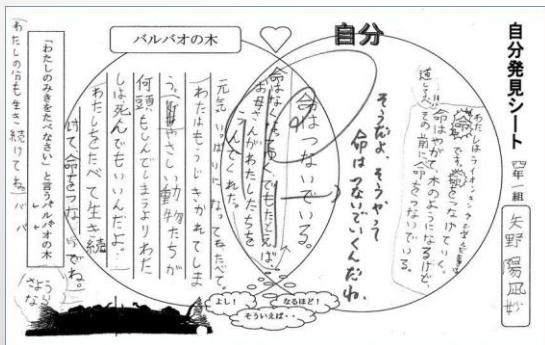 自分発見シート
四年一組
矢野 陽凪妙
自分
命
です。
をつなげていく。
命はやがて、木のようになるけど、
その前に命をつないでいる。
そうだよ、そうやって
命はつないでいくんだね。
命はつないでいる。
命はなくなっても
お母さんがわたしたちを
うんでくれた。
バルバオの木
元気いっぱいになってね
たべて。
わたはもうじきかれてしま
う。
やさしい動物たちが
何頭もしんでしまうよりわた
しは死んでもいいんだよ…
わたしをたべて生き続
けて、命をつな
でね。
「わたしのみきをたべなさい」と言うバルバオの木
(わたしの分も生き続けてね。)
よし!
なるほど!
そういえば・・